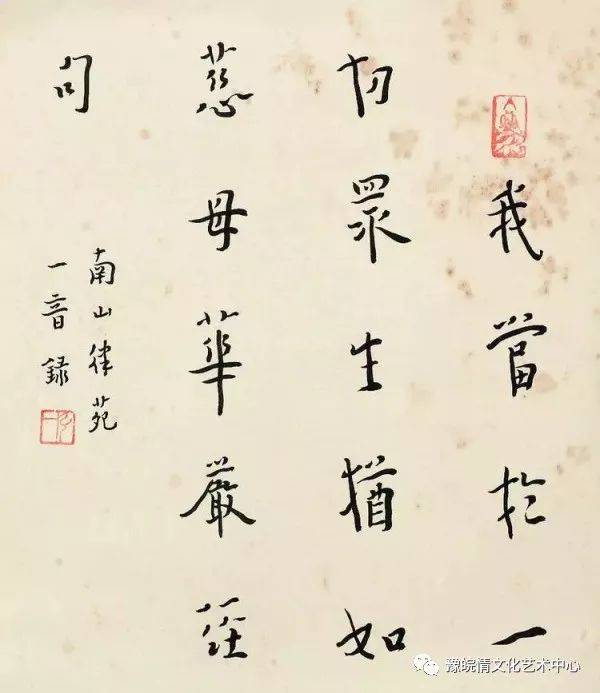 我當於一
切眾生猶如
慈母華嚴經
句
南山律苑
一音錄
豫皖情文化艺术中心